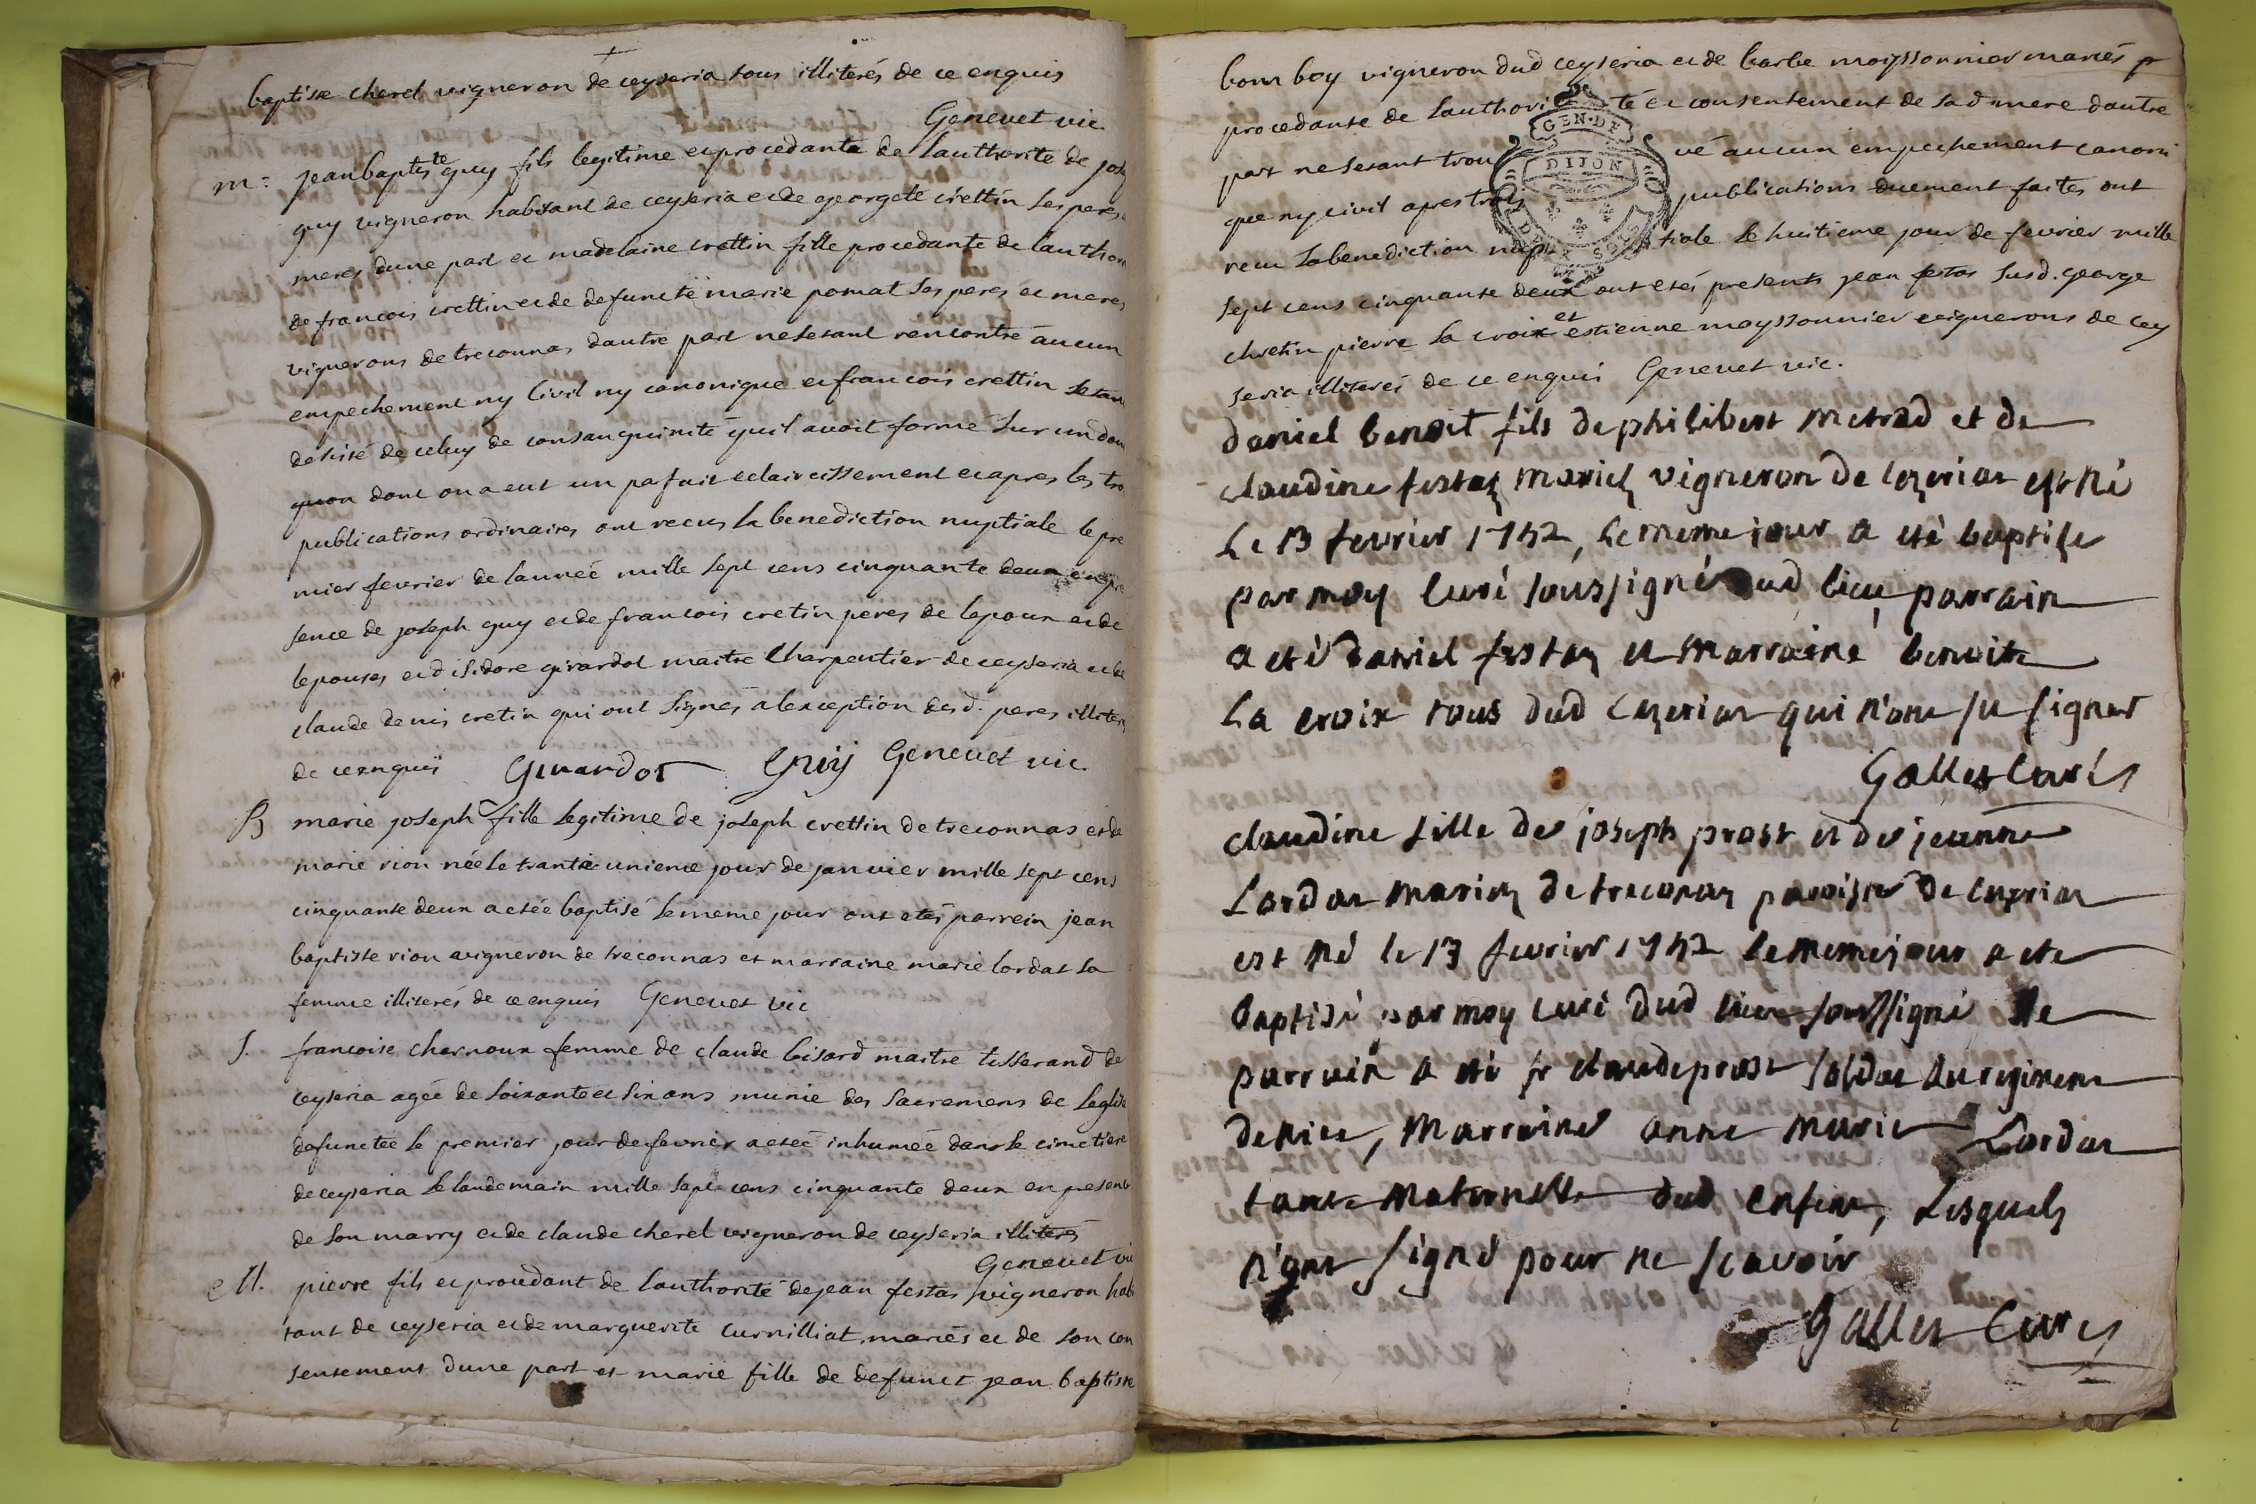 baptiste cherel vigneron de ceyseria tous illiterés de ce enquis
Genevet vic.
m= jean baptiste guy fils legitime et procedante de lauthorite de jose
guy vigneron habitant de ceyseria et de georgete crettin ses peres
meres dune part et madelaine crettin fille procedante de lauthori
de francois crettin et de defuncte marie pomat ses peres et meres
vignerons de treconnas dautre part ne setant rencontré aucun
empechement ny Civil ny canonique et francois crettin setant
desisté de celuy de consanguinité quil avoit formé sur un dou
quon dont on a eut un pafait eclaircissement et apres les tro
publications ordinaires ont recus la benediction nuptiale le pre
mier fevrier de lannée mille sept cens cinquante deux en pre
sence de joseph guy et de francois cretin peres de lepoux et de
lepouses et disidore girardot maitre Charpentier de ceyseria et de
claude denis cretin qui ont signés a lexception desd. peres illiterés
de ce enquis Girardot Guij Genevet vic.
B marie joseph fille legitime de joseph crettin de treconnas et de
marie rion née le trante unieme jour de janvier mille sept cens
cinquante deux a etée baptisé le meme jour ont etés parrein jean
baptiste rion vigneron de treconnas et marraine marie lordat sa
femme illiterés de ce enquis Genevet vic
S. francoise charnoux femme de claude bisard maitre tisserand de
ceyseria agée de soixante et six ans munie des sacremens de leglise
defunctée le premier jour de fevrier a etée inhumée dans le cimetiere
de ceyseria le landemain mille sept cens cinquante deux en presence
de son marry et de claude cherel vigneron de ceyseria illiterés
Genevet vic
M. pierre fils et procedant de lauthorité de jean festas vigneron habi
tant de ceyseria et de marguerite Curnilliat mariés et de son con
sentement dune part et marie fille de defunct jean baptiste
bom boy vigneron dud ceyseria et de barbe moyssonnier mariés
procedante de lauthorité et consentement de sad mere dautre
part ne sesant trouvé aucun empechement canoni
que ny civil apres trois publications duement faites ont
recu la benediction nuptiale le huitieme jour de fevrier mille
sept cens cinquante deux ont etés presents jean festas susd. george
chretin pierre la croix et estienne moyssonnier vignerons de cey
seria illiterés de ce enquis Genevet vic.
GEN·DE
DIJON
daniel benoit fils de philibert metrad et de
claudine festaz mariez vigneron de cezeriat est né
Le 13 fevrier 1752, le meme jour a eté baptize
par moy curé soussigné dud lieu, parrain
a eté daniel festaz et marraine benoite
La croix tous dud cezeriat qui n'ont su signer
Gallet Curé
claudine fille de joseph prost et de jeanne
Lordat mariez de treconaz paroisse de cezeriat
est né le 13 fevrier 1752 le meme jour a ete
baptisé par moy curé dud lieu soussigné le
parrain a eté sr claude prost soldat au regiment
de nice, Marraine anne marie Lordat
tante maternelle dud enfant, Lesquels
n'ont signé pour ne scavoir
Gallet Curé